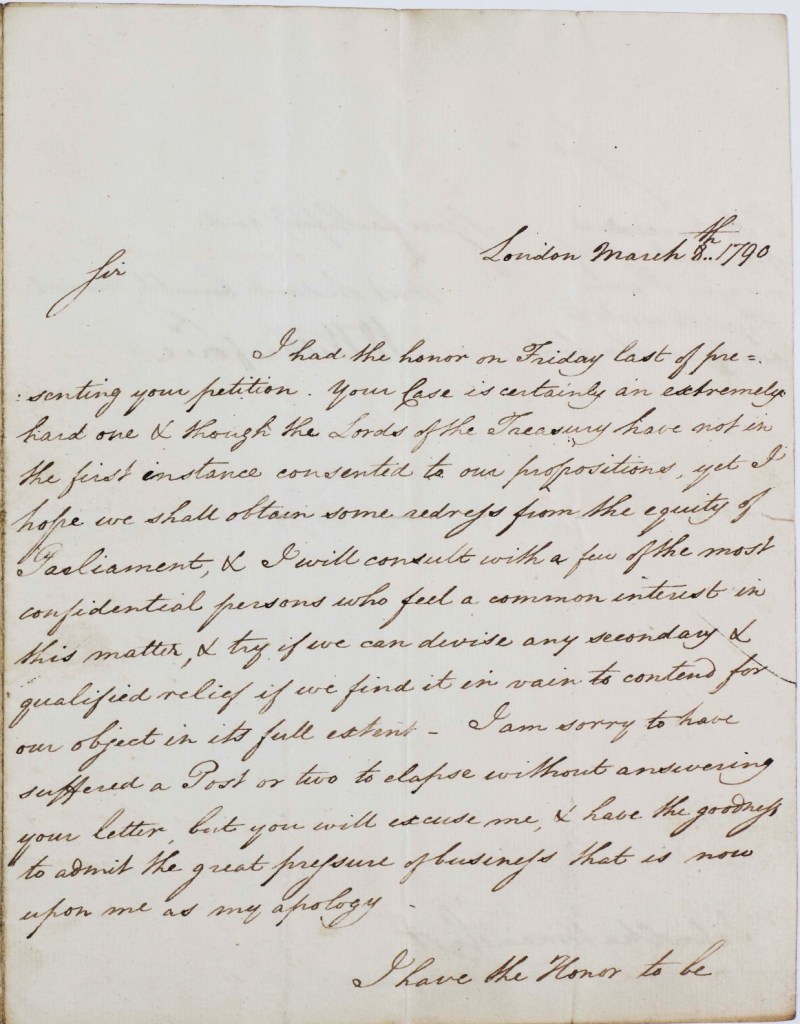 London March 8th.. 1790
Sir
I had the honor on Friday last of pre=
:senting your petition. Your Case is certainly an extremely
hard one & though the Lords of the Treasury have not in
the first instance consented to our propositions, yet I
hope we shall obtain some redress from the equity of
Parliament, & I will consult with a few of the most
confidential persons who feel a common interest in
this matter, & try if we can devise any secondary &
qualified relief if we find it in vain to contend for
our object in its full extent – I am sorry to have
suffered a Post or two to elapse without answering
your letter, but you will excuse me, & have the goodness
to admit the great pressure of business that is now
upon me as my apology.
I have the Honor to be